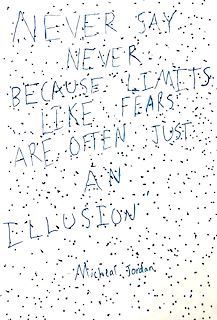 NEVER SAY
NEVER
BECAUSE LIMITS
LIKE FEARS
ARE OFTEN JUST
AN
ILLUSION
Micheal Jordan